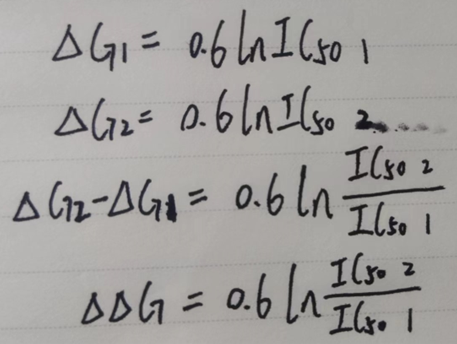 ΔG1 = 0.6 ln IC50 1
ΔG2 = 0.6 ln IC50 2
ΔG2-ΔG1 = 0.6 ln IC50 2 / IC50 1
ΔΔG = 0.6 ln IC50 2 / IC50 1